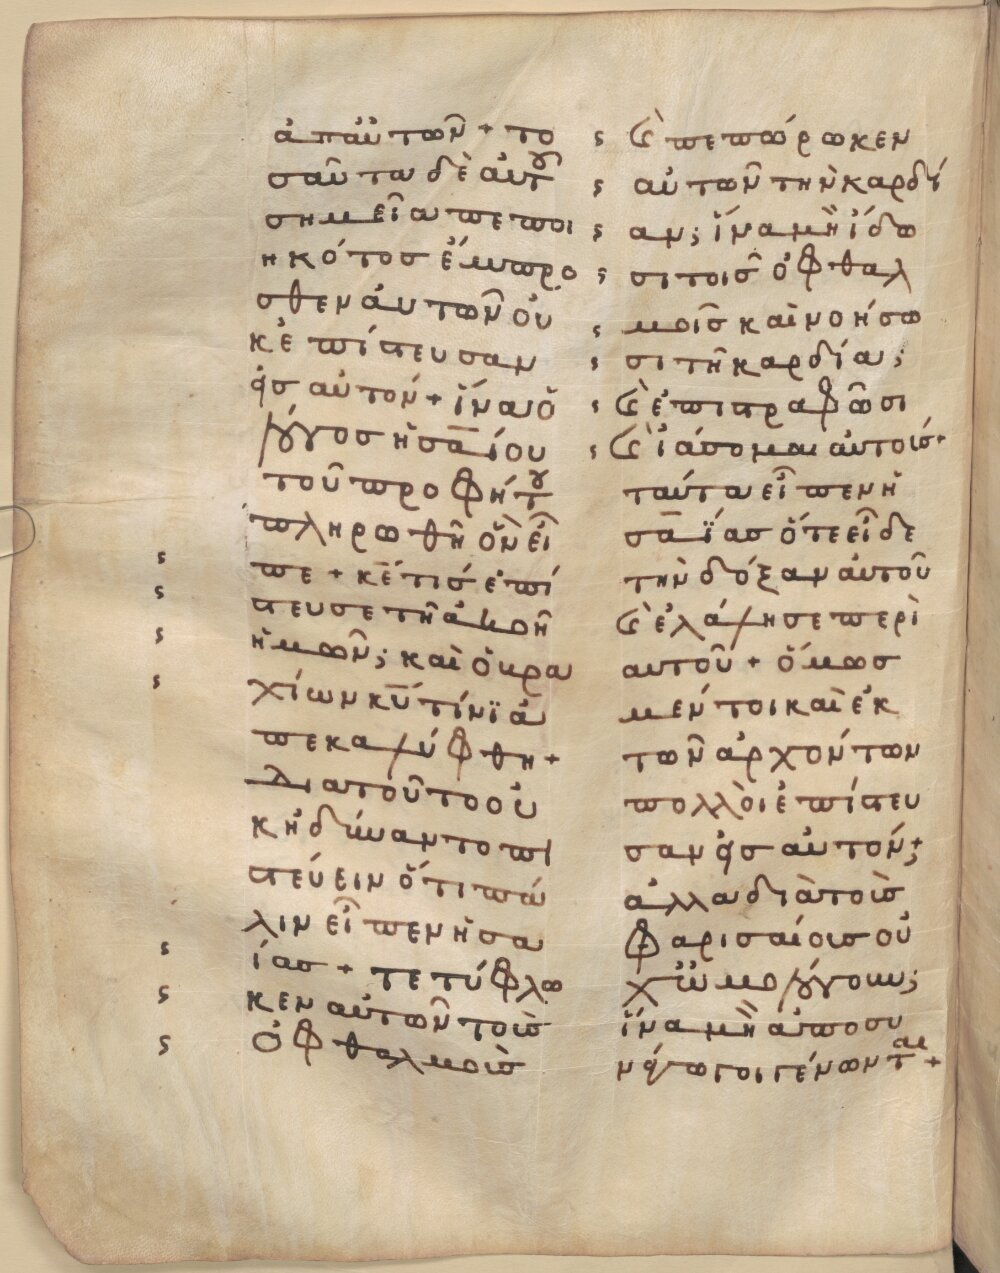 ἀπ αὐτων + το
σαῦτα δὲ αὐτ(οῦ)
σημεῖα πεποι
ηκότος ἔμπρο
σθεν αὐτῶν οὐ
κ ἐπίστευσαν
εἰς αὐτόν + ἵνα ὁ
λόγος ἡσαΐου
τοῦ προφήτ(ου)
πληρωθῆ ὃν εἶ
πε + κ̅ε̅ τίς ἐπί
στευσε τῆ ἀκοῆ
ἡμῶν; καὶ ὁ βρα
χίων κ̅υ̅ τίνι ἀ
πεκαλύφθη +
διατοῦτο οὐ
κ ἠδύναντο πι
στεύειν ὅτι πά
λιν εἶπεν ἡσα
ΐας + τετύφλω
κεν αὐτῶν τοὺς
ὀφθαλμοὺς
ϗ̀ πεπώρωκεν
αὐτῶν τὴν καρδί
αν; ἵνα μὴ ἴδω
σι τοῖς ὀφθαλ
μοῖς καὶ νοήσω
σι τῆ καρδία;
ϗ̀ ἐπιστραφῶσι
ϗ̀ ἰάσομαι αὐτούς +
ταῦτα εἶπεν ἡ
σαΐας ὅτε εἶδε
τὴν δόξαν αὐτοῦ
ϗ̀ ἐλάλησε περὶ
αυτοῦ + ὅμως
μέντοι καὶ ἐκ
τῶν ἀρχόντων
πολλοὶ ἐπίστευ
σαν εἰς αὐτόν;
ἀλλα διὰ τοὺς
φαρισαίους οὐ
χ ὡμολόγουν;
ἵνα μὴ ἀποσυ
νάγωγοι γένωντ(αι) +